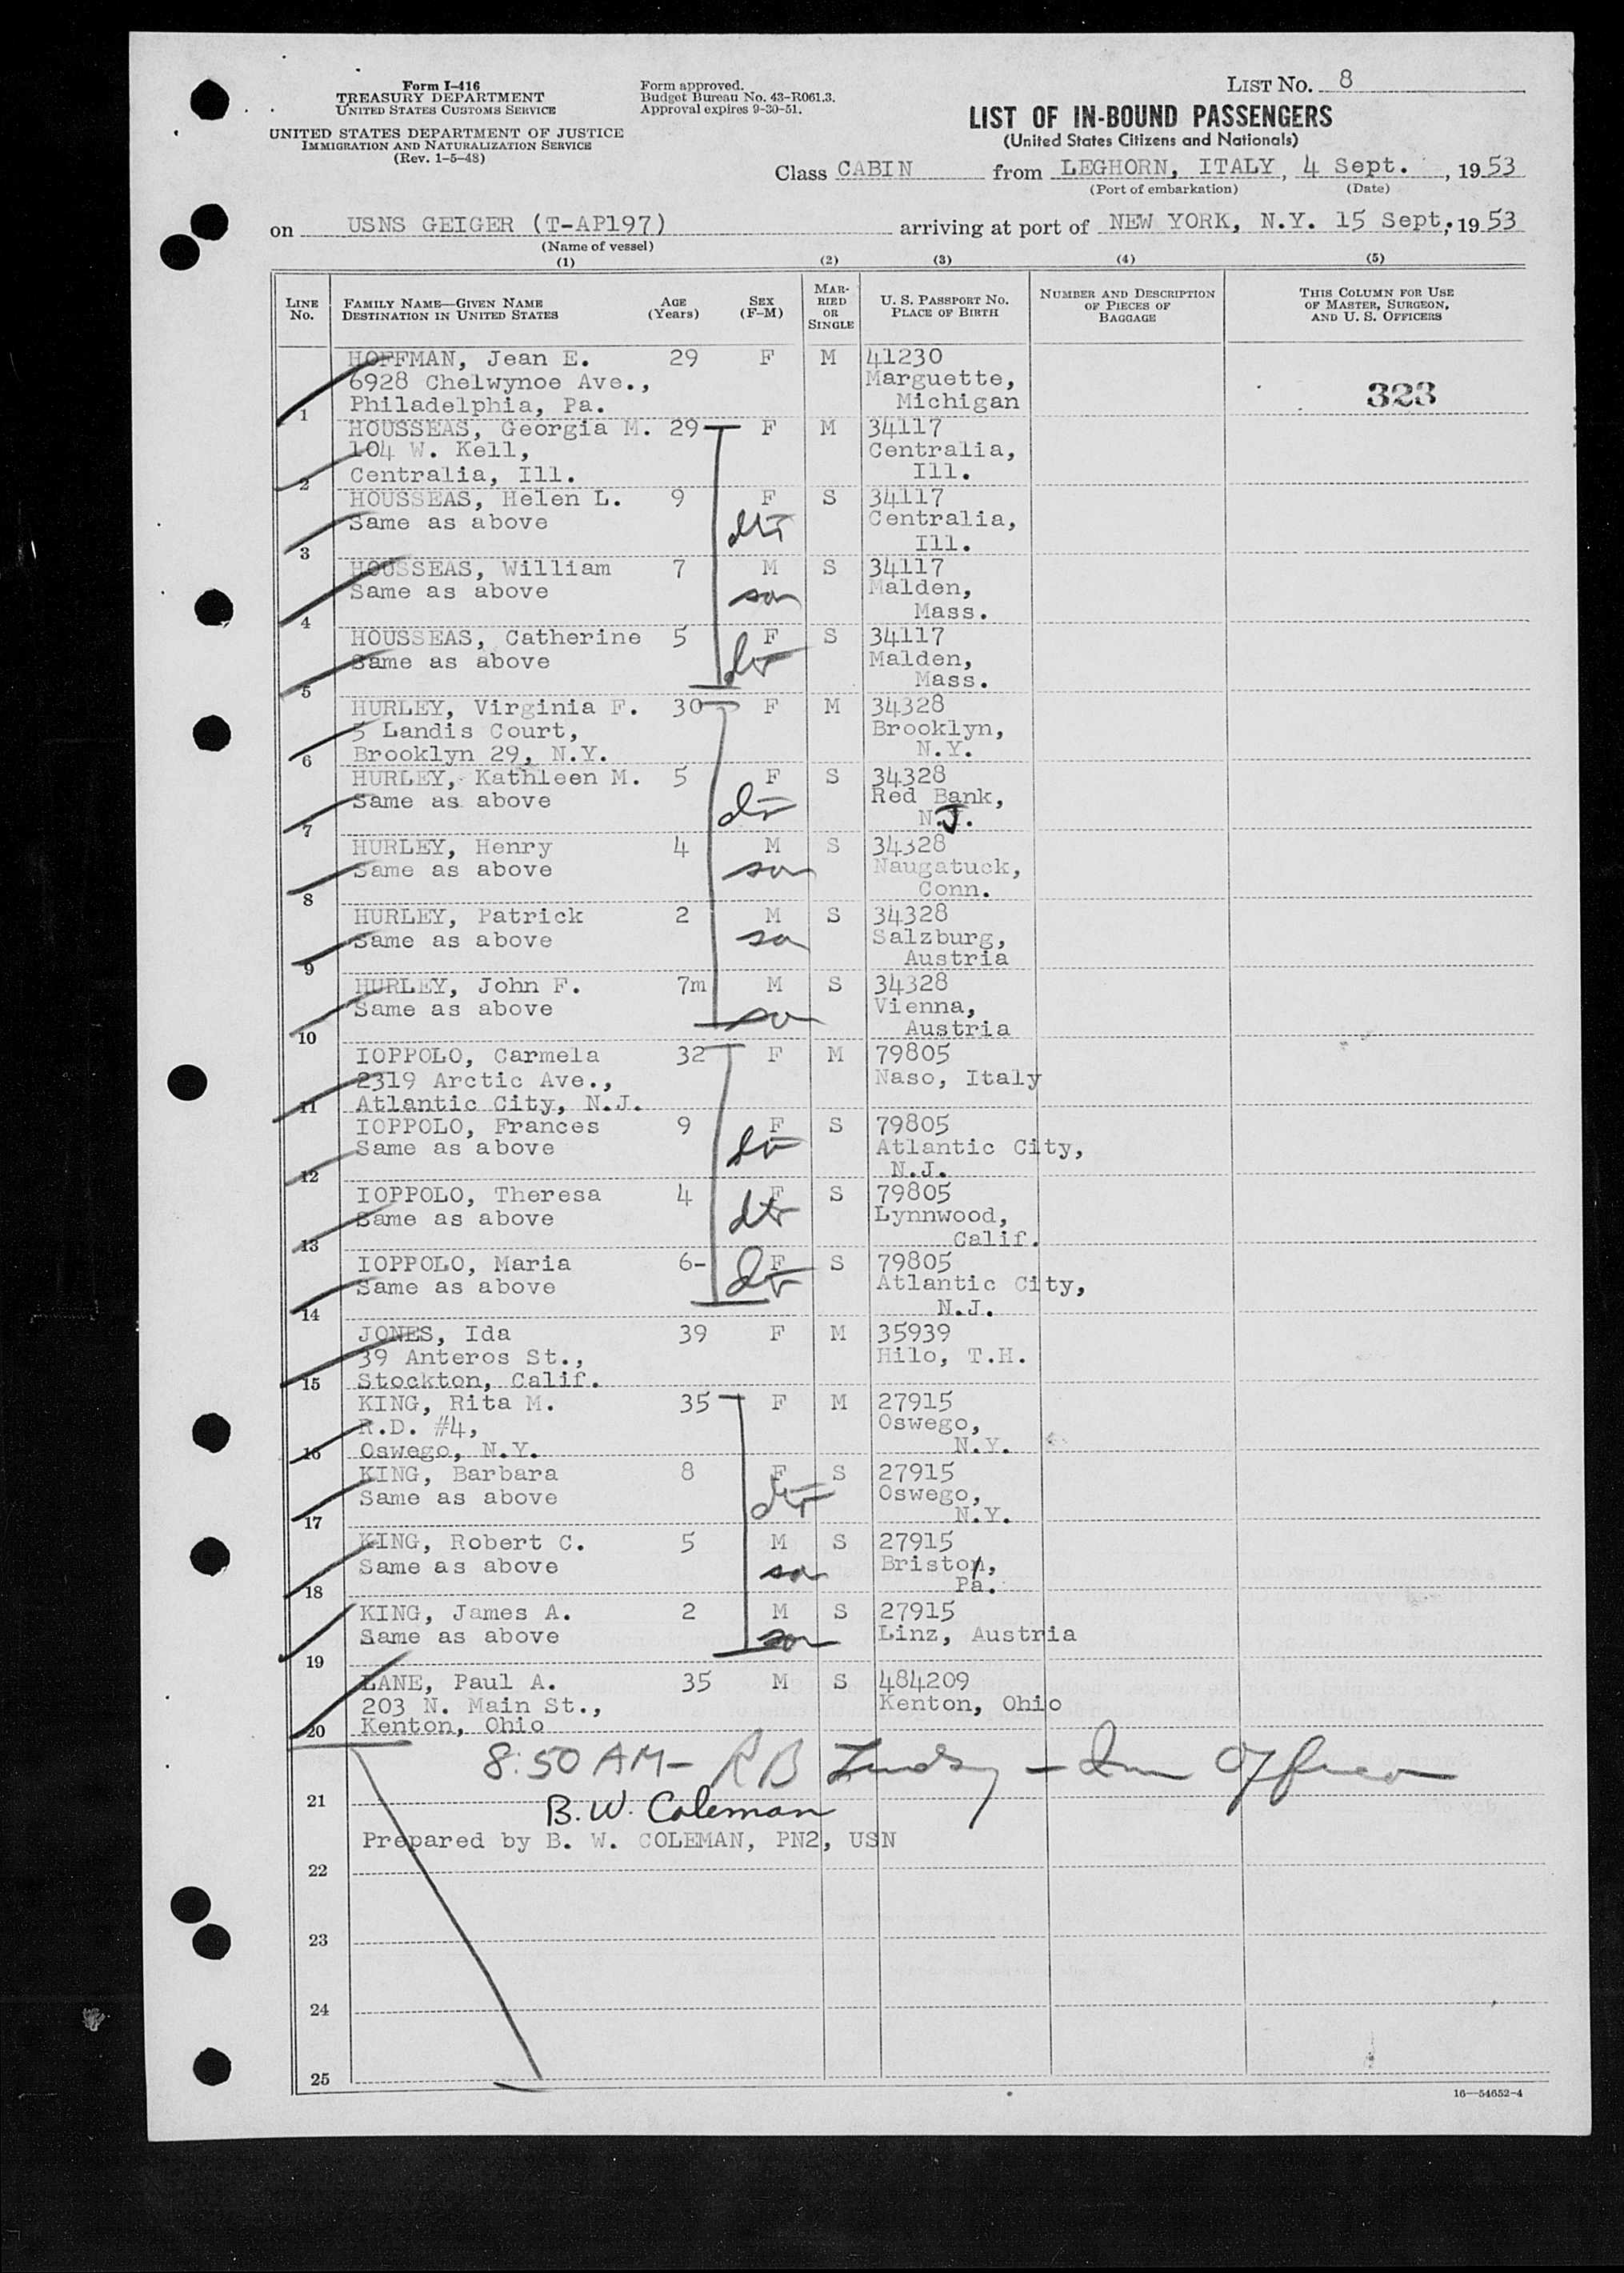 Form I-416
TREASURY DEPARTMENT
UNITED STATES CUSTOMS SERVICE
UNITED STATES DEPARTMENT OF JUSTICE
IMMIGRATION AND NATURALIZATION SERVICE
(Rev. 1-5-48)
Form approved.
Budget Bureau No. 43-R061.3.
Approval expires 9-30-51.
LIST NO. 8
LIST OF IN-BOUND PASSENGERS
(United States Citizens and Nationals)
Class CABIN from LEGHORN, ITALY, 4 Sept., 1953
(Port of embarkation) (Date)
on USNS GEIGER (T-AP197) arriving at port of NEW YORK, N.Y. 15 Sept, 1953
(Name of vessel)
(1) (2) (3) (4) (5)
LINE No. FAMILY NAME—GIVEN NAME DESTINATION IN UNITED STATES AGE (Years) SEX (F-M) MARRIED OR SINGLE U. S. PASSPORT NO. PLACE OF BIRTH NUMBER AND DESCRIPTION OF PIECES OF BAGGAGE THIS COLUMN FOR USE OF MASTER, SURGEON, AND U. S. OFFICERS
HOFFMAN, Jean E. 29 F M 41230
6928 Chelwynoe Ave., Marguette,
1 Philadelphia, Pa. Michigan 323
HOUSSEAS, Georgia M. 29 F M 34117
104 W. Kell, Centralia,
2 Centralia, Ill. Ill.
HOUSSEAS, Helen L. 9 F S 34117
Same as above dtr Centralia,
3 Ill.
HOUSSEAS, William 7 M S 34117
Same as above son Malden,
4 Mass.
HOUSSEAS, Catherine 5 F S 34117
Same as above dtr Malden,
5 Mass.
HURLEY, Virginia F. 30 F M 34328
5 Landis Court, Brooklyn,
6 Brooklyn 29, N.Y. N.Y.
HURLEY, Kathleen M. 5 F S 34328
Same as above dtr Red Bank,
7 N.J.
HURLEY, Henry 4 M S 34328
Same as above son Naugatuck,
8 Conn.
HURLEY, Patrick 2 M S 34328
Same as above son Salzburg,
9 Austria
HURLEY, John F. 7m M S 34328
Same as above son Vienna,
10 Austria
IOPPOLO, Carmela 32 F M 79805
2319 Arctic Ave., Naso, Italy
11 Atlantic City, N.J.
IOPPOLO, Frances 9 F S 79805
Same as above dtr Atlantic City,
12 N.J.
IOPPOLO, Theresa 4 F S 79805
Same as above dtr Lynnwood,
13 Calif.
IOPPOLO, Maria 6- F S 79805
Same as above dtr Atlantic City,
14 N.J.
JONES, Ida 39 F M 35939
39 Anteros St., Hilo, T.H.
15 Stockton, Calif.
KING, Rita M. 35 F M 27915
R.D. #4, Oswego,
16 Oswego, N.Y. N.Y.
KING, Barbara 8 F S 27915
Same as above dtr Oswego,
17 N.Y.
KING, Robert C. 5 M S 27915
Same as above son Briston,
18 Pa.
KING, James A. 2 M S 27915
Same as above son Linz, Austria
19
LANE, Paul A. 35 M S 484209
203 N. Main St., Kenton, Ohio
20 Kenton, Ohio
8:50 AM - RB - Imm Officer
21 B.W. Coleman
Prepared by B. W. COLEMAN, PN2, USN
22
23
24
25
16—54652-4